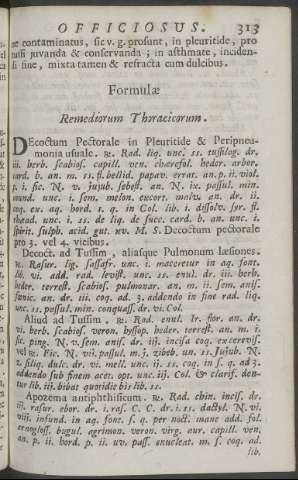 OFFICIOSUS. 313
contaminatus, sic v. g. prosunt, in pleuritide, pro
tussi juvanda & conservanda; in asthmate, inciden-
di fine, mixta tamen & refracta cum dulcibus.
Formulæ
Remediorum Thoracicorum.
DEcoctum Pectorale in Pleuritide & Peripneu-
monia usuale. ℞. Rad. liq. unc. ss. tussilag. dr.
iii. herb. scabios. capill. ven. chærefol. heder. arbor.
card. b. an. m. ss. fl. bellid. papav. errat. an. p. ii. viol.
p. i. fic. N. v. jujub. sebest. an. N. ix. passul. min.
mund. unc. i. sem. melon. excort. malv. an. dr. ii.
coq. ex. aq. hord. s. q. in Col. lib. i. dissolv. syr. fl.
unc. i. ss. de liq. de succ. card. b. an. unc. i.
spirit. sulph. acid. gut. M. S. Decoctum pectorale
pro 3. vel 4. vicibus.
Decoct. ad Tussim, aliasque Pulmonum læsiones.
℞. Rasur. lig. sassafr. unc. i. maceretur in aq. font.
lib. vi. add. rad. levist. unc. ss. enul. dr. iii. herb.
heder. terrest. scabios. pulmonar. an. m. ii. sem. anis.
fœnic. an. dr. iii. coq. ad 3. addendo in fine rad. liq.
unc. ss. passul. min. conquass. dr. vi. Col.
Aliud ad Tussim. ℞. Rad. enul. Ir. flor. an. dr.
vi. herb. scabios. veron. hyssop. heder. terrest. an. m. i.
fic. ping. N. v. sem. anis. dr. iiss. incisa coq. ex cerevis.
vel ℞. Fic. N. vii. passul. m. z. zibeb. un. ss. Jujub. N.
x. siliq. dulc. dr. vi. mell. unc. ii. ss. coq. in s. q. ad 3.
addendo sub finem acet. opt. unc. iiss. Col. & clarif. den-
tur lib. iii. bibat quotidie bis lib. ss.
Apozema antiphthisicum. ℞. Rad. chin. incis. dr.
iii. rasur. ebor. dr. i. ras. C. C. dr. i. ss. dactyl. N. vi.
infund. in aq. font. s. q. per noct. mane add. fol.
arnogloss. bugul. agrimon. veron. virg. aur. capill. ven.
an. p. ii. hord. p. ii. uv. pass. enucleat. m. s. coq. ad
lib.